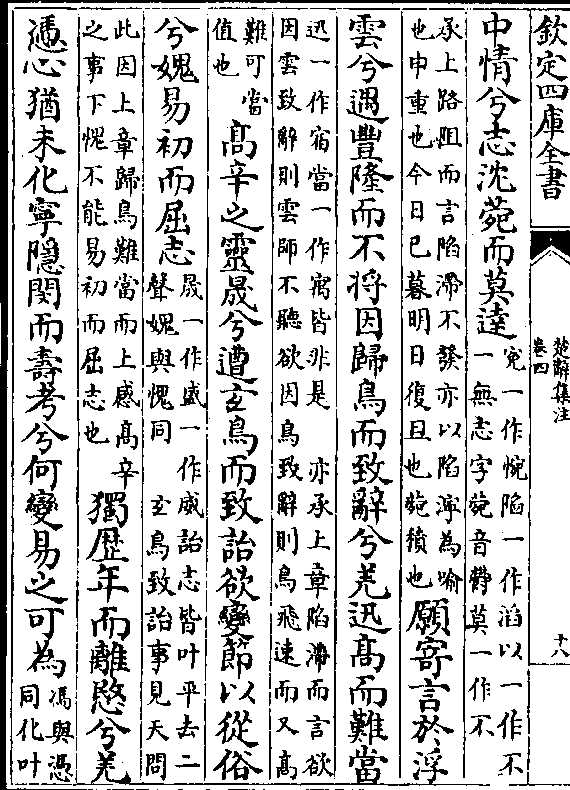 欽定四庫全書
楚辭集注
卷四
十八
中情兮志沈菀而莫達
寃一作惋陷一作滔以一作不
一無志字菀音鬱莫一作不
承上路阻而言陷滯不發亦以陷濘為喻
也申重也今日已暮明日復旦也菀積也
願寄言於浮
雲兮遇豐隆而不將因歸鳥而致辭兮羌迅高而難當
迅一作宿當一作寓皆非是 亦承上章陷滯而言欲
因雲致辭則雲師不聽欲因鳥致辭則鳥飛速而又高
難可當
值也
高辛之靈晟兮遭玄鳥而致詒欲變節以從俗
兮媿易初而屈志
晟一作盛一作威詒志皆叶平去二
聲媿與愧同 玄鳥致詒事見天問
此因上章歸鳥難當而上感高辛
之事下愧不能易初而屈志也
獨歴年而離愍兮羌
馮心猶未化寧隱閔而壽考兮何變易之可為
馮與憑
同化叶